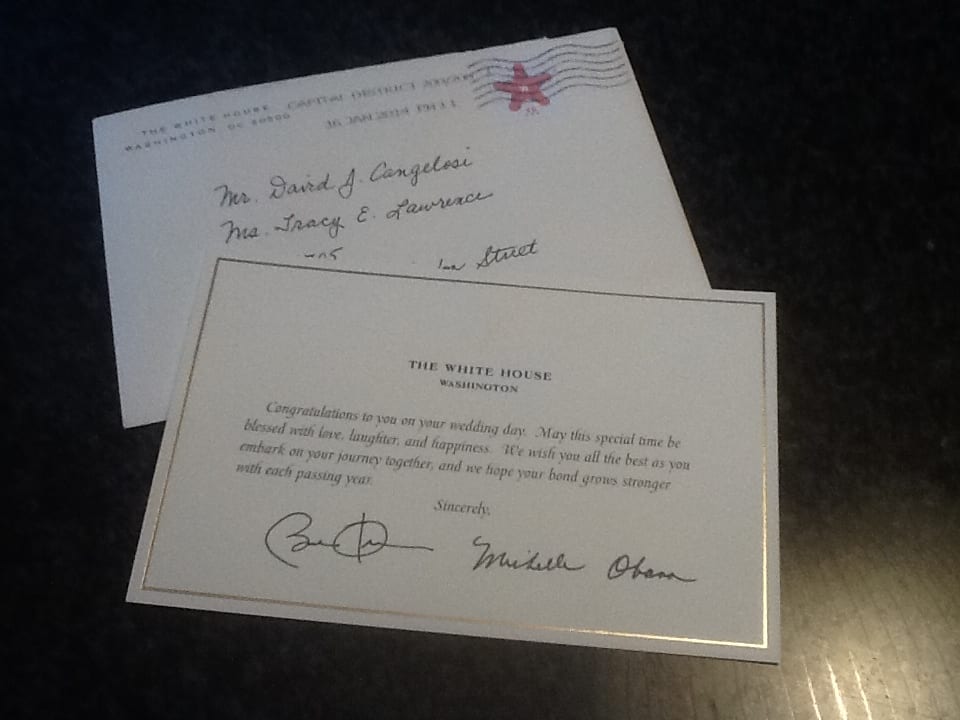 THE WHITE HOUSE
WASHINGTON, DC 20500
CAPITAL DISTRICT
16 JAN 2014 PM 1 L
Mr. David J. Cangelosi
Ms. Tracy E. Lawrence
Street
THE WHITE HOUSE
WASHINGTON
Congratulations to you on your wedding day. May this special time be
blessed with love, laughter, and happiness. We wish you all the best as you
embark on your journey together, and we hope your bond grows stronger
with each passing year.
Sincerely,
Michelle Obama